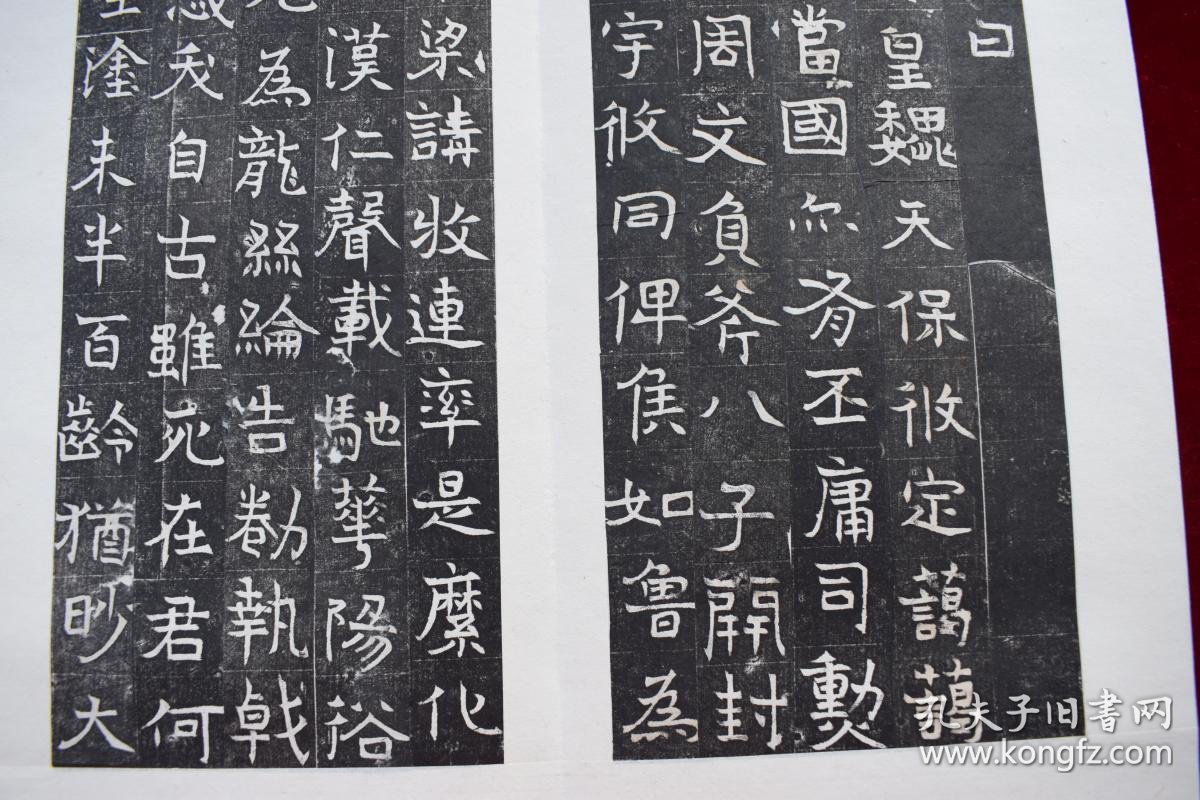 曰
皇魏天保攸定藹藹
當國尒肴丕庸司勳
周文負斧八子開封
宇攸同俾侯如魯為
梁講收連率是縻化
漢仁聲載馳華陽裕
為龍絲綸告勌執戟
自古雖死在君何
塗未半百齡猶眇大
孔夫子旧書网
www.kongfz.com